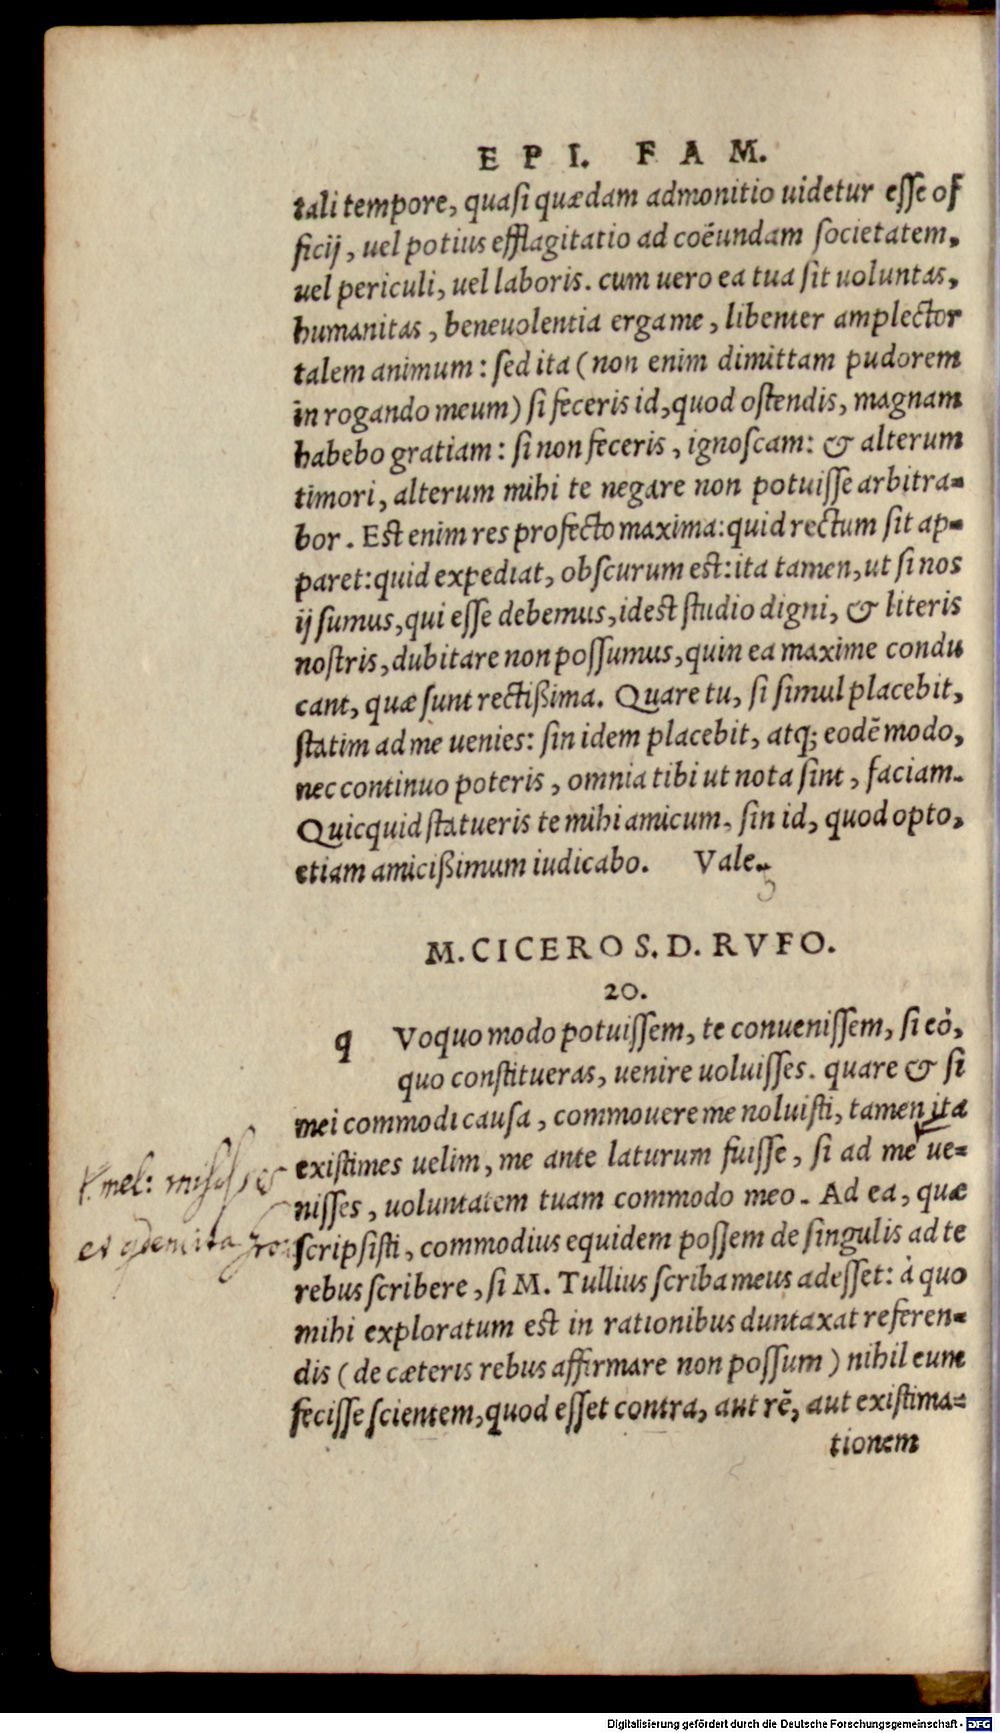 EPI. FAM.
tali tempore, quasi quædam admonitio uidetur esse of
ficij, uel potius efflagitatio ad coëundam societatem,
uel periculi, uel laboris. cum uero ea tua sit uoluntas,
humanitas, beneuolentia erga me, libenter amplector
talem animum: sed ita (non enim dimittam pudorem
in rogando meum) si feceris id, quod ostendis, magnam
habebo gratiam: si non feceris, ignoscam: & alterum
timori, alterum mihi te negare non potuisse arbitra=
bor. Est enim res profecto maxima: quid rectum sit ap=
paret: quid expediat, obscurum est: ita tamen, ut si nos
ij sumus, qui esse debemus, idest studio digni, & literis
nostris, dubitare non possumus, quin ea maxime condu
cant, quæ sunt rectißima. Quare tu, si simul placebit,
statim ad me uenies: sin idem placebit, atq; eodē modo,
nec continuo poteris, omnia tibi ut nota sint, faciam.
Quicquid statueris te mihi amicum, sin id, quod opto,
etiam amicißimum iudicabo. Vale.
M. CICERO S. D. RVFO.
20.
q Voquo modo potuissem, te conuenissem, si eò,
quo constitueras, uenire uoluisses. quare & si
mei commodi causa, commouere me noluisti, tamen ita
existimes uelim, me ante laturum fuisse, si ad me ue=
nisses, uoluntatem tuam commodo meo. Ad ea, quæ
scripsisti, commodius equidem possem de singulis ad te
rebus scribere, si M. Tullius scriba meus adesset: à quo
mihi exploratum est in rationibus duntaxat referen=
dis (de cæteris rebus affirmare non possum) nihil eum
fecisse scientem, quod esset contra, aut rē, aut existima=
tionem
mel:
et
Digitalisierung gefördert durch die Deutsche Forschungsgemeinschaft - DFG